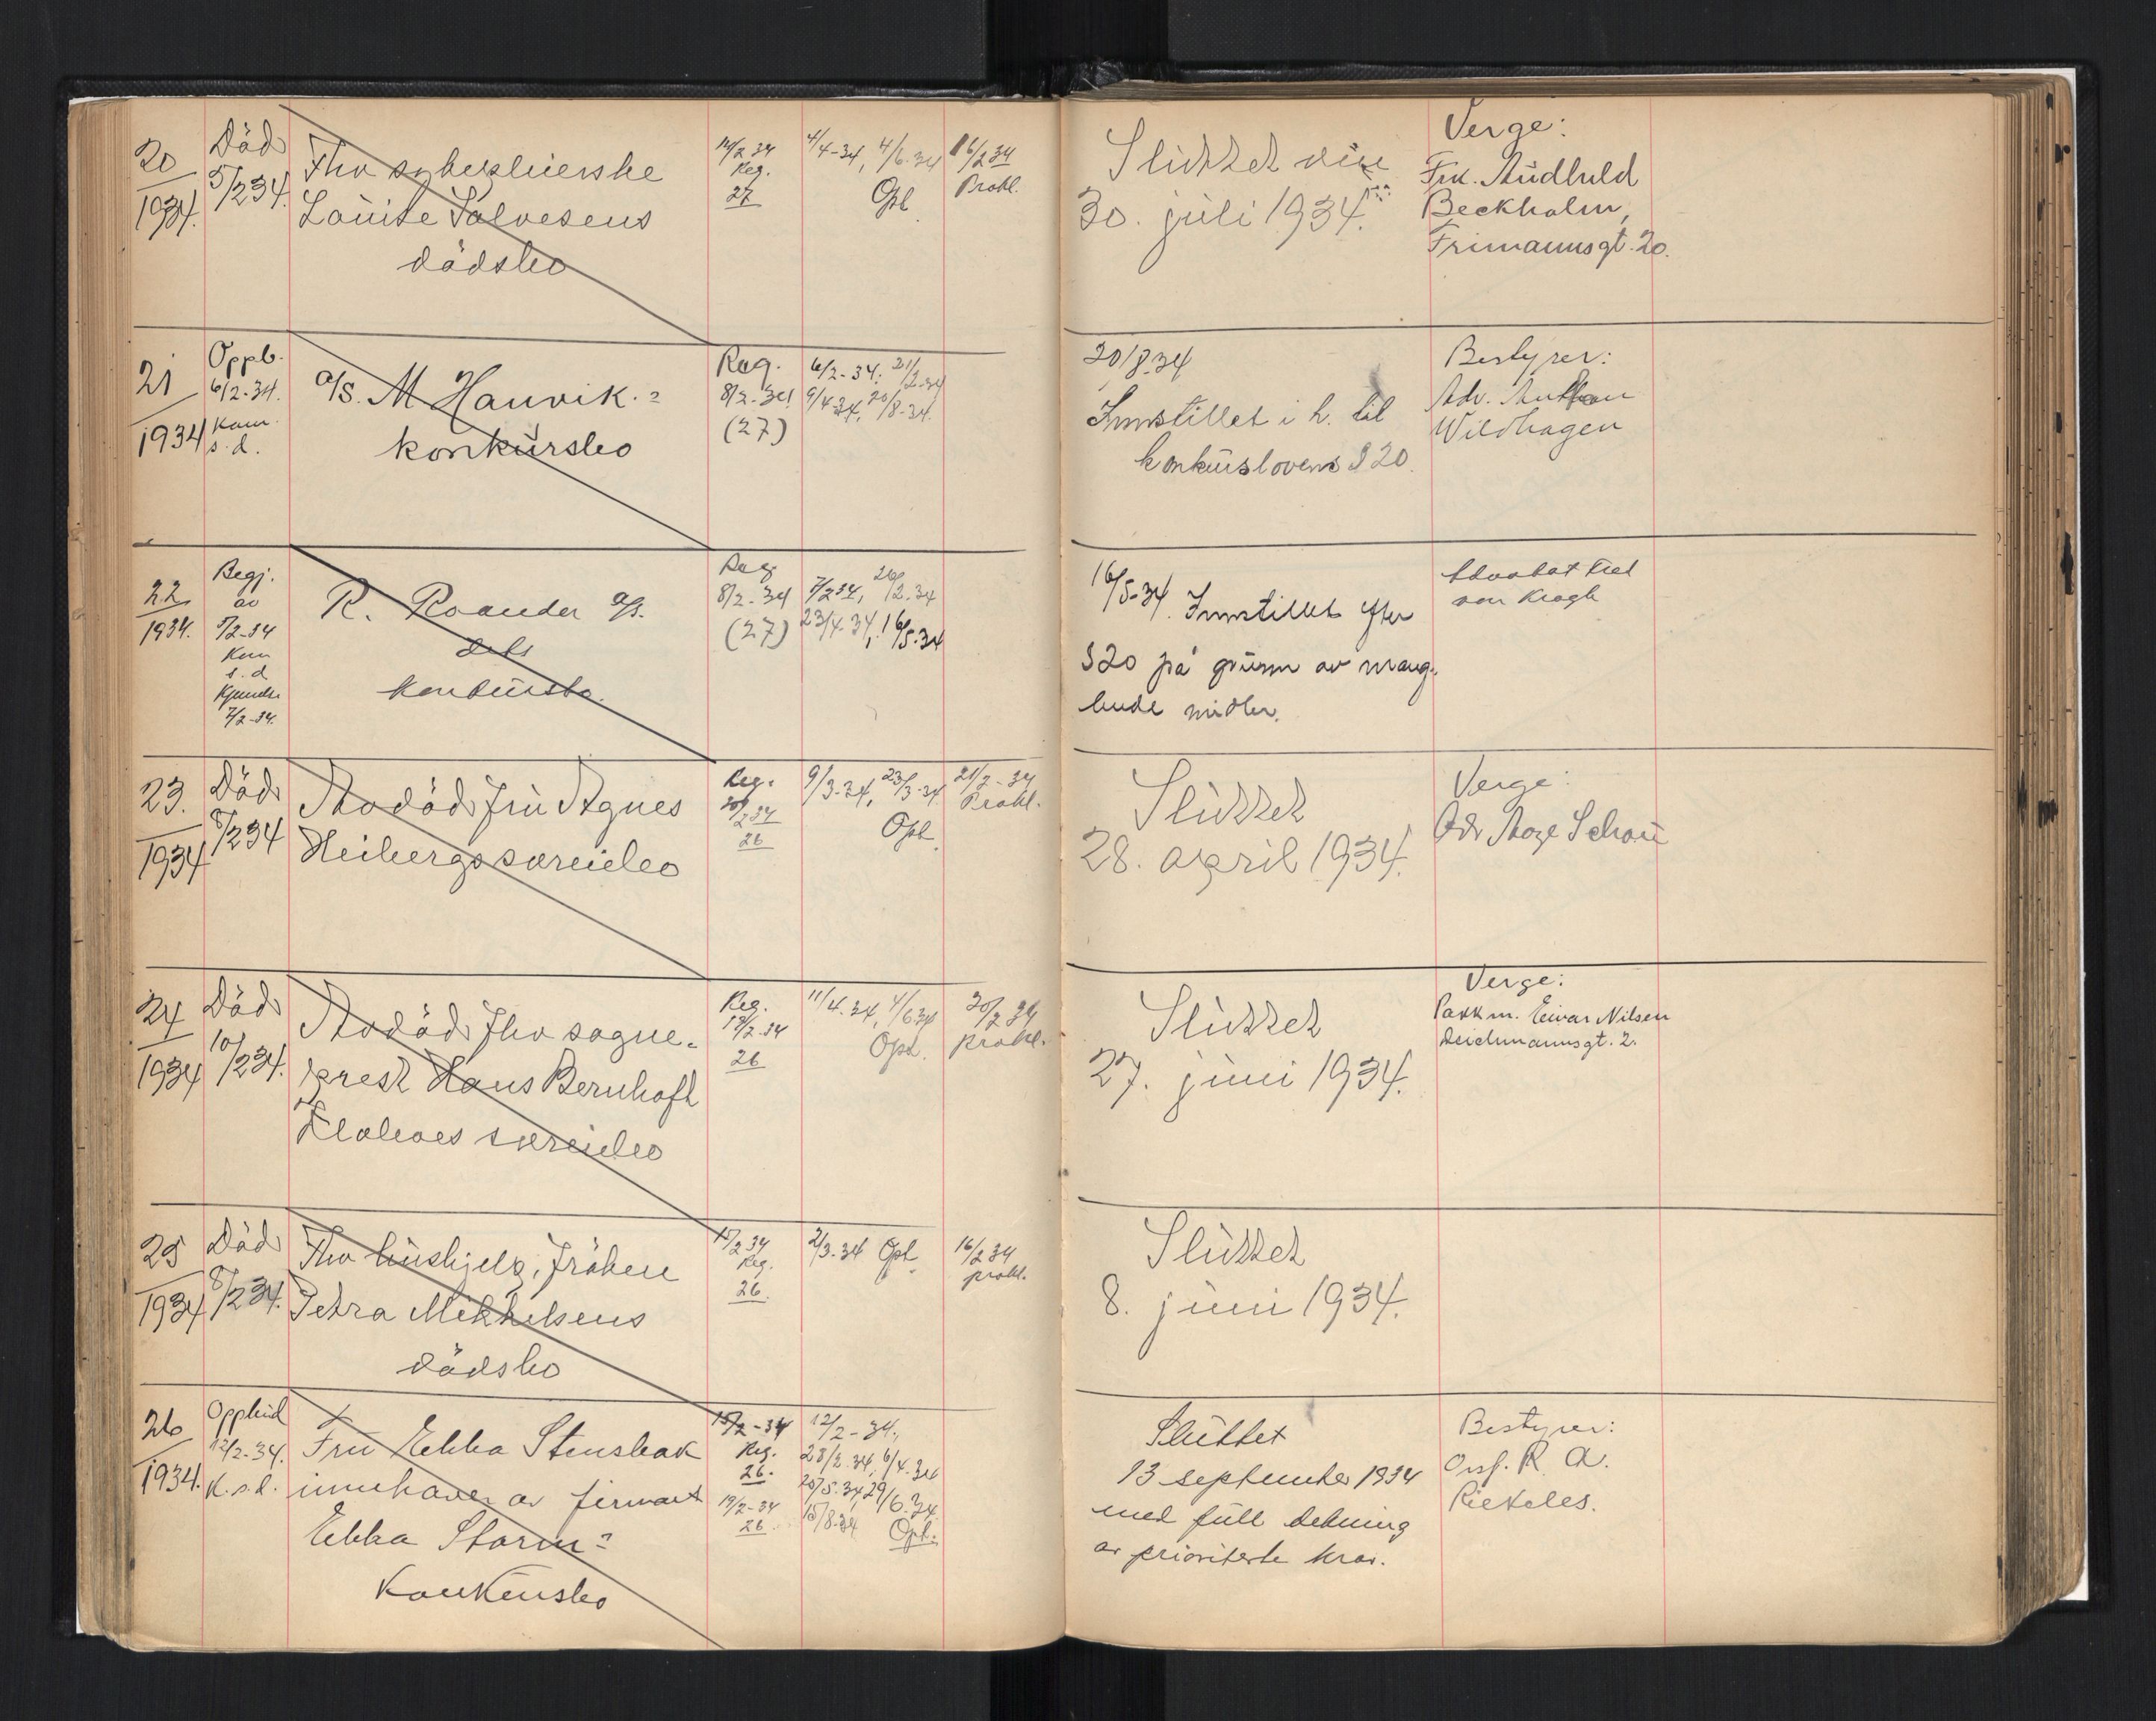 20
1934.
Död
5/2 34.
Fhv
Louise Salvesens
dödsbo
14/2 34
Reg.
27
4/4-34, 4/6-34
Opl
16/2 34
Prokl.
Sluttet
30. juli 1934.
Verge:
Frk. Audhild
Beckholm,
Frimannsgt. 20.
21
1934
Oppb.
6/2-34.
Kom.
s.d.
A/S. M Hanvik.=
konkursbo
Reg.
8/2-34
(27)
6/2-34; 21/2-34
9/4-34, 20/8-34.
20/8 34
Innstillet i h. til
konkurslovens § 20.
Bestyrer:
Adv. Anthon
Wildhagen
22
1934.
Begj.
av
5/2-34
Kom
s.d
Kjennelse
7/2-34.
R. Roander A/S.
dets
konkursbo.
Reg
8/2-34
(27)
7/2 34, 26/2.34
23/4-34, 16/5-34
16/5-34. Innstillet efter
§20 på grunn av mang-
lende midler.
Advokat Fred
von Krogh
23.
1934
Död
8/2 34
Avdöd fru Agnes
Heibergs særeiebo
Reg.
20/2 34
26
9/3-34, 23/3-34
Opl.
21/2-34
Prokl.
Sluttet
28. april 1934.
Verge:
Adv Aage Schou
24
1934
Död
10/2 34.
Avdöd fhv sogne-
prest Hans Bernhoft
særeiebo
Reg.
19/2-34
26
11/4-34, 4/6 34
Opl.
20/2 34
prokl.
Sluttet
27. juni 1934.
Verge:
Pakkm. Eivar Nilsen
Deichmannsgt. 2.
25
1934
Död
8/2 34.
Fhv hushjelp, fröken
Petra Mikkelsens
dödsbo
15/2 34
Reg.
26.
2/3-34 Opl
16/2 34
prokl.
Sluttet
8. juni 1934.
26
1934.
Oppbud
12/2-34.
K. s.d.
Fru Ebba Stensbak
innehaver av firmaet
Ebba Storm=
Konkursbo
15/2-34
Reg.
26.
19/2-34
26
12/2-34.,
28/2.34, 6/4-34
20/5.34, 29/6.34
15/8-34 Opl.
Sluttet
13 september 1934
med full dekning
av prioriterte krav.
Bestyrer:
Orsf. R. A.
Rieteles.